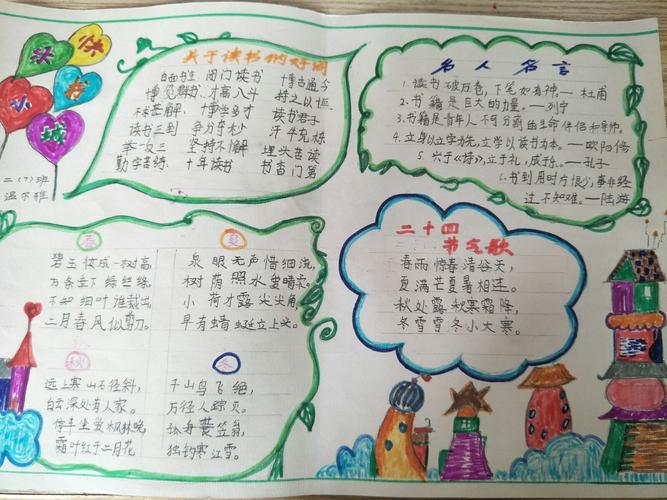 快
乐
书
小
城
二（7）班
温尔雅
关于读书的好词
白面书生 闭门读书 博古通今
博览群书 才高八斗 持之以恒
不求甚解 博学多才 读书君子
读书三到 争分夺秒 汗牛充栋
举一反三 坚持不懈 埋头苦读
勤学苦练 十年读书 书香门第
名人名言
1. 读书破万卷，下笔如有神。—杜甫
2. 书籍是巨大的力量。—列宁
3. 书籍是青年人不可分割的生命伴侣和导师。
4. 立身以立学为先，立学以读书为本。—欧阳修
5. 兴于《诗》，立于礼，成于乐。—孔子
6. 书到用时方恨少，事非经
过不知难。—陆游
春
碧玉妆成一树高，
万条垂下绿丝绦。
不知细叶谁裁出，
二月春风似剪刀。
夏
泉眼无声惜细流，
树荫照水爱晴柔。
小荷才露尖尖角，
早有蜻蜓立上头。
秋
远上寒山石径斜，
白云深处有人家。
停车坐爱枫林晚，
霜叶红于二月花
冬
千山鸟飞绝，
万径人踪灭。
孤舟蓑笠翁，
独钓寒江雪。
二十四
节气歌
春雨惊春清谷天，
夏满芒夏暑相连。
秋处露秋寒霜降，
冬雪雪冬小大寒。